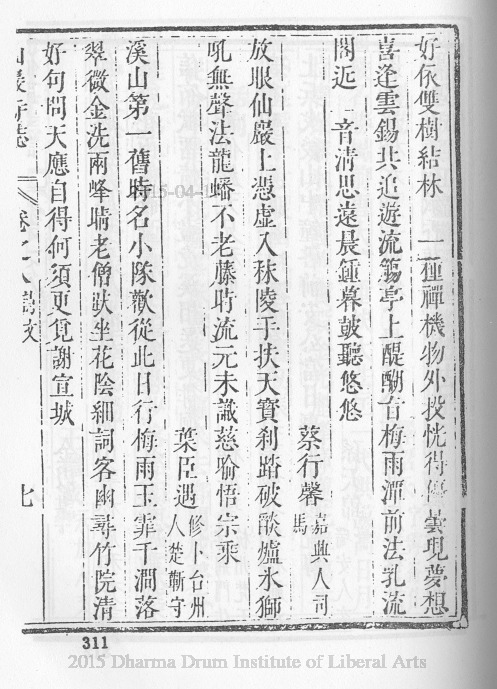 好依雙樹結林 一種禪機物外投恍得優曇現夢想
喜逢雲錫共追遊流觴亭上醍醐古梅雨潭前法乳流
閣近 音清思遠晨鍾暮皷聽悠悠
蔡行馨 嘉興人司馬
放眼仙巖上憑虛入秣陵于扶天寶刹踏破爐氷獅
吼無聲法龍蟠不老藤時流元未識慈喻悟宗乘
葉臣遇 修卜台州人楚蘄守
溪山第一舊時名小隊歡從此日行梅雨玉霏千澗落
翠微金洗兩峰晴老僧趺坐花陰細詞客幽尋竹院清
好句問天應自得何須更覓謝宣城
巖寺志 卷之八 七
311
2015 Dharma Drum Institute of Liberal Arts